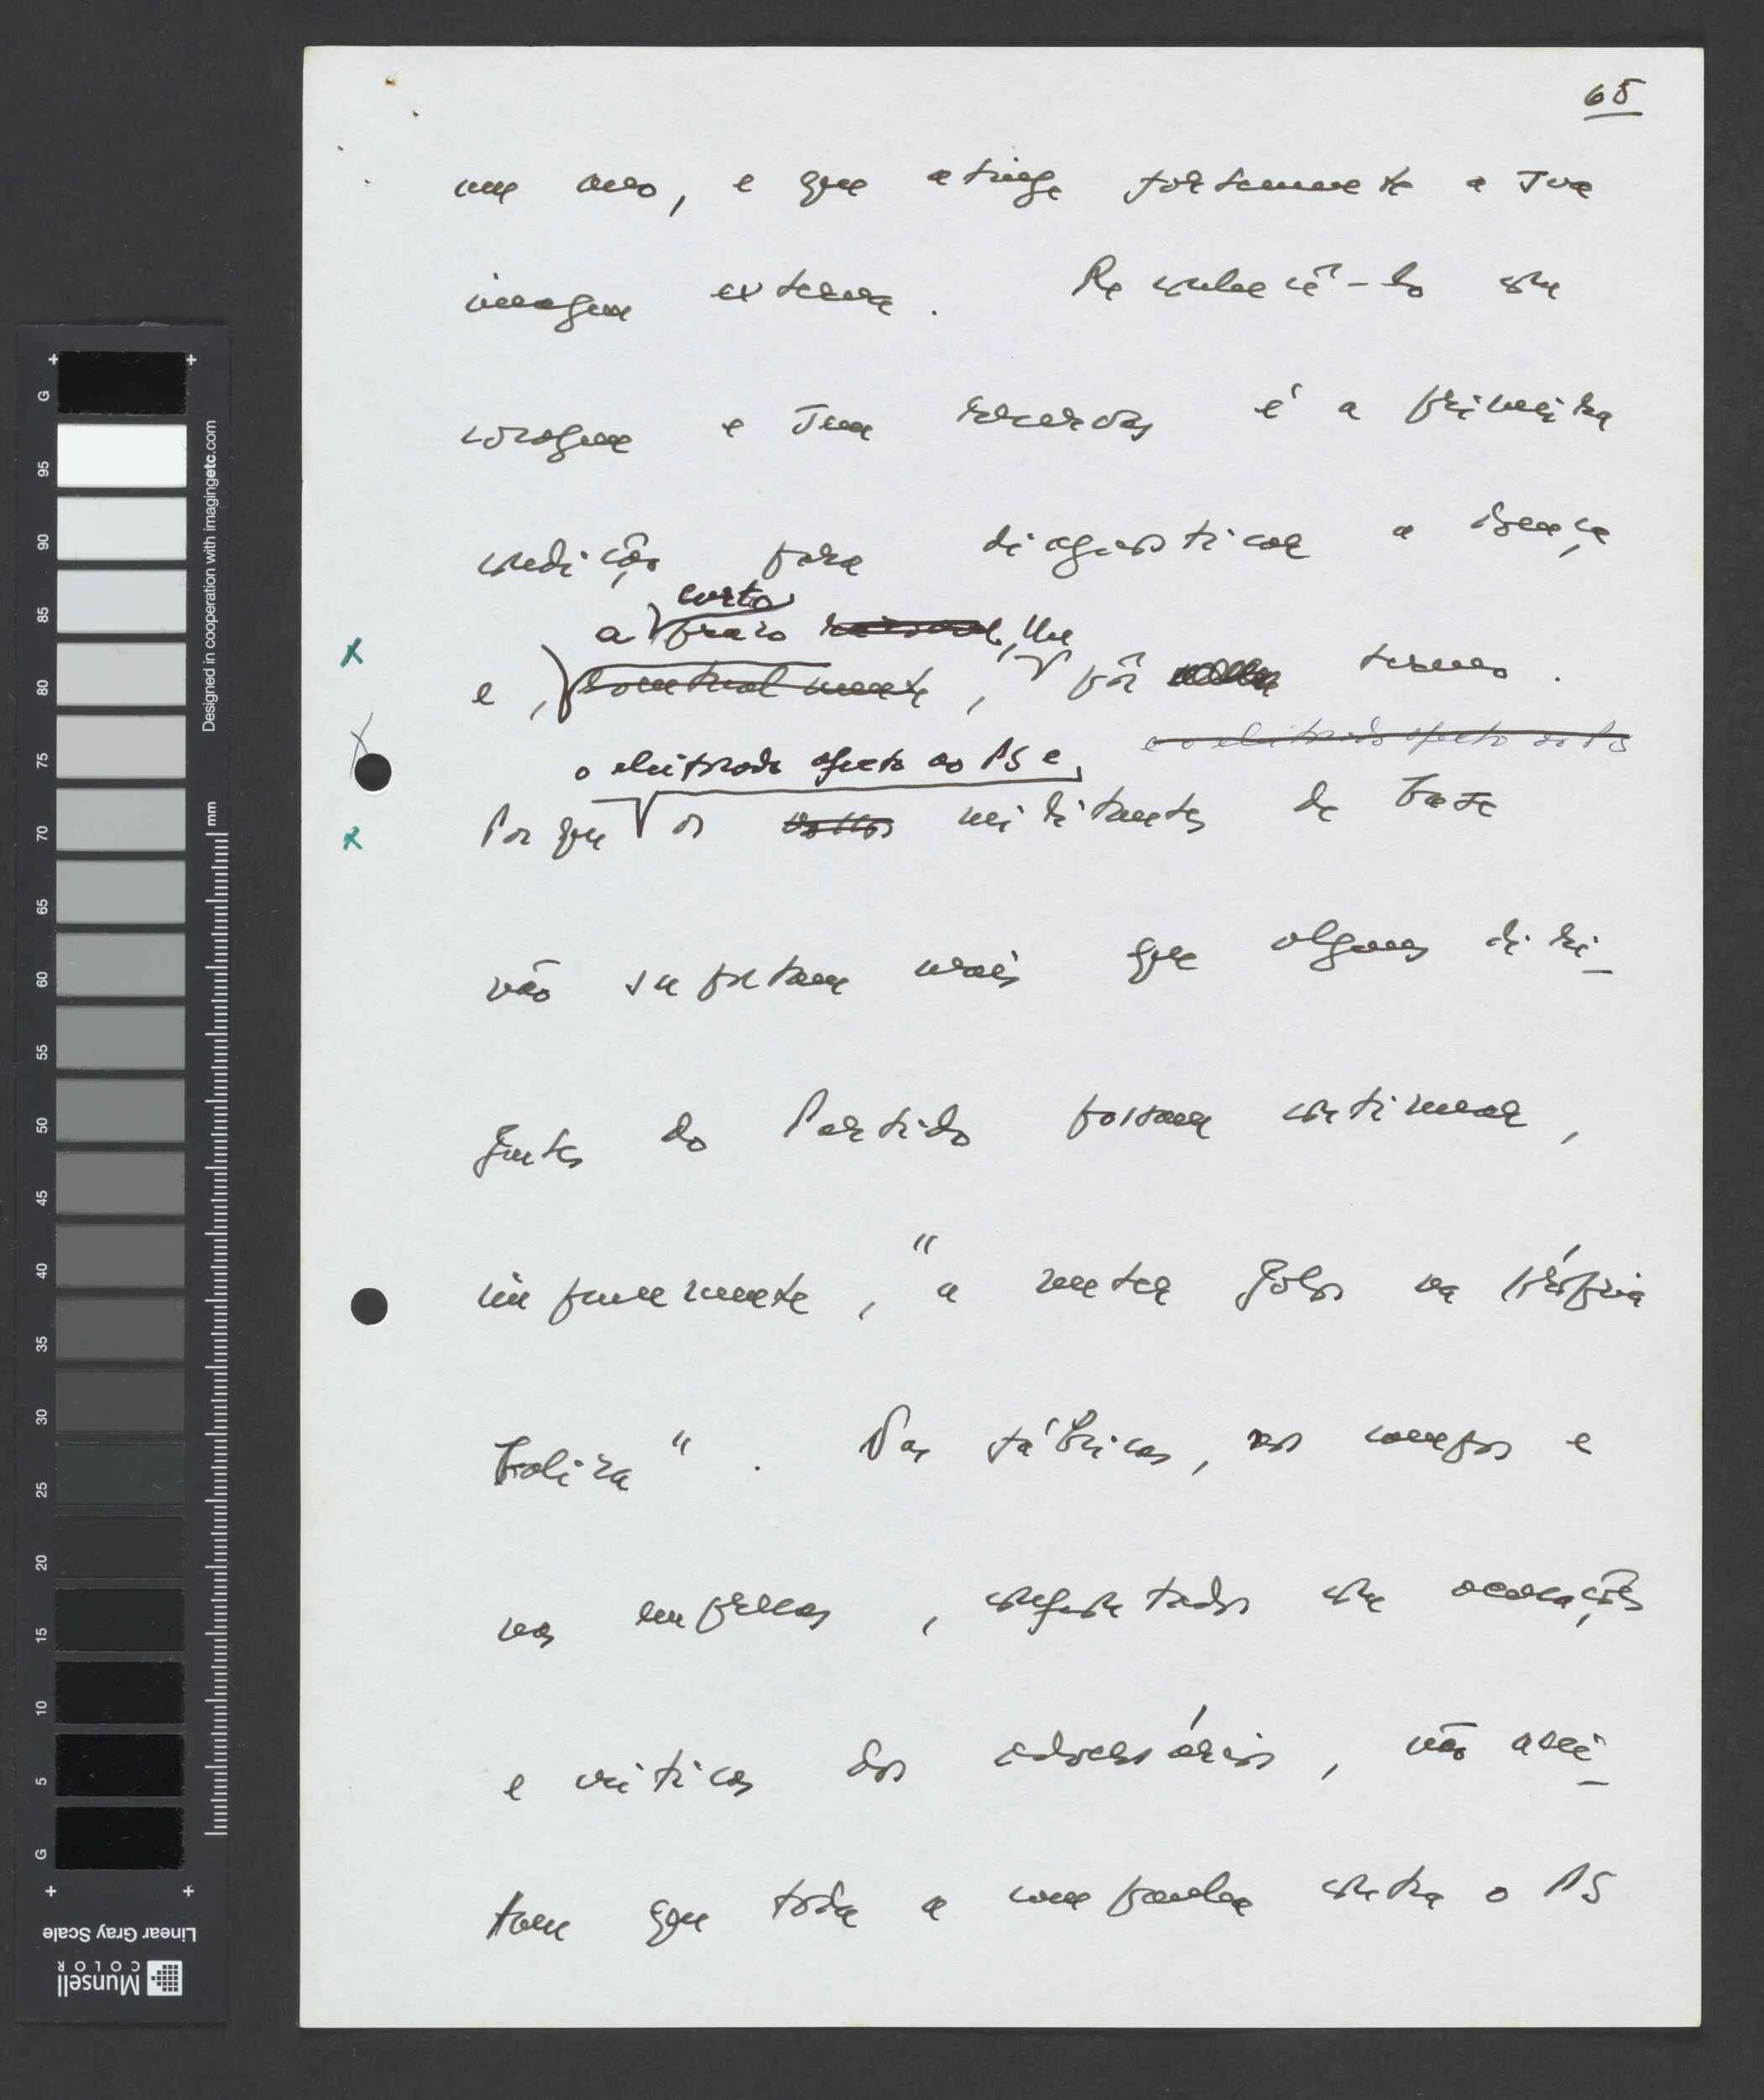 65
um ano, e que atinge fortemente a sua
imagem externa. Reconhecê-lo com
coragem e sem reservas é a primeira
condição para diagnosticar a doença
curto
a prazo, lhe
e, eventualmente, pôr termo.
e o eleitorado afecto ao PS
o eleitorado afecto ao PS e,
Porque os militantes de base
não suportam mais que alguns diri-
gentes do Partido possam continuar,
impunemente, "a meter golos na própria
baliza". Nas fábricas, nos campos e
nas empresas, confrontados com acusações
e críticas dos adversários, não acei-
tam que toda a campanha contra o PS
G
95
90
85
80
75
70
65
60
55
50
45
40
35
30
25
20
15
10
5
G
mm
Designed in cooperation with imagingetc.com
Linear Gray Scale
Munsell
COLOR